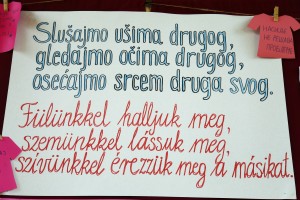 Slušajmo ušima drugog,
gledajmo očima drugog,
osećajmo srcem druga svog.
Fülünkkel halljuk meg,
szemünkkel lássuk meg,
szívünkkel érezzük meg a másikat.